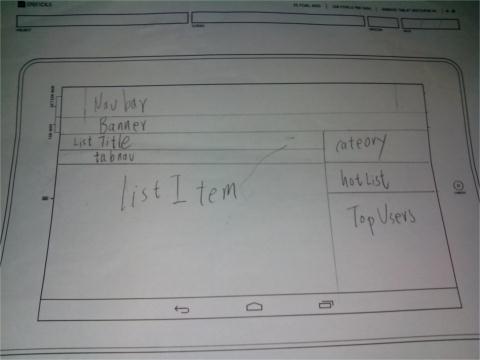 Nav bar
Banner
List Title
tabnav
List Item
cateory
hotList
Top Users